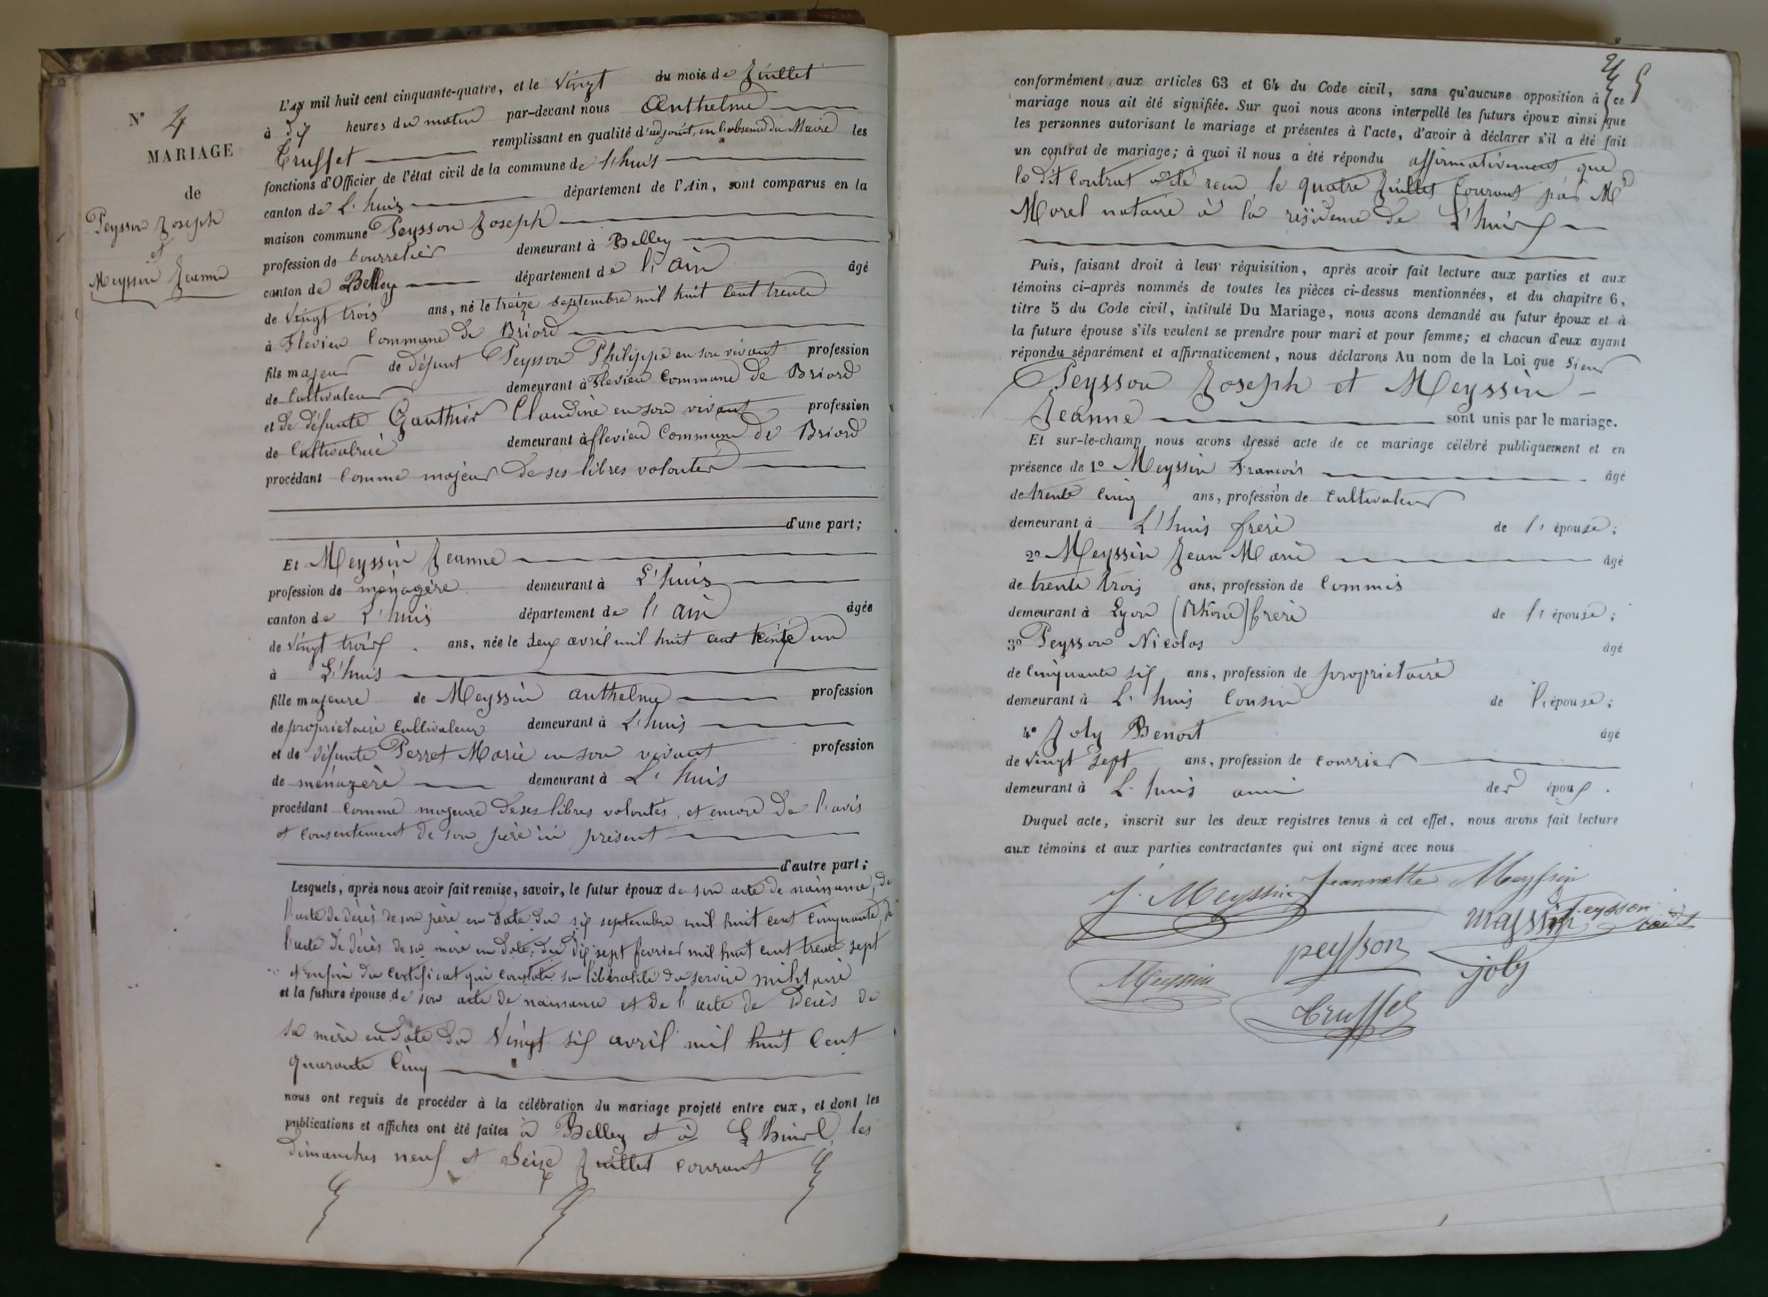 N° 4
MARIAGE
de
Peysson Joseph
et
Meyssin Jeanne
L'an mil huit cent cinquante-quatre, et le vingt du mois de Juillet
à dix heures du matin par-devant nous Anthelme
Truffet remplissant en qualité d'adjoint, en l'absence du Maire les
fonctions d'Officier de l'état civil de la commune de l'huis
canton de L'huis département de l'Ain, sont comparus en la
maison commune Peysson Joseph
profession de bourrelier demeurant à Belley
canton de Belley département de l'ain âgé
de vingt trois ans, né le treize septembre mil huit cent trente
à Flevieu Commune de Briord
fils majeur de défunt Peysson Philippe en son vivant profession
de Cultivateur demeurant à Flevieu Commune de Briord
et de défunte Gauthier Claudine en son vivant profession
de Cultivatrice demeurant à flevieu Commune de Briord
procédant Comme majeur de ses libres volontés
d'une part;
Et Meyssin Jeanne
profession de ménagère demeurant à L'huis
canton de L'huis département de l'ain âgée
de vingt trois ans, née le deux avril mil huit cent trente un
à L'huis
fille majeure de Meyssin anthelme profession
de propriétaire Cultivateur demeurant à L'huis
et de défunte Perret Marie en son vivant profession
de ménagère demeurant à L'huis
procédant Comme majeure de ses libres volontés, et encore de l'avis
et consentement de son père ici présent
d'autre part;
Lesquels, après nous avoir fait remise, savoir, le futur époux de son acte de naissance, de
l'acte de décès de son père en date du six septembre mil huit cent cinquante, de
l'acte de décès de sa mère en date du dix sept fevrier mil huit cent trente sept
et enfin du certificat qui constate sa libéralité du service militaire
et la future épouse de son acte de naissance et de l'acte de Décès de
sa mère en date du vingt six avril mil huit Cent
quarante cinq
nous ont requis de procéder à la célébration du mariage projeté entre eux, et dont les
publications et affiches ont été faites à Belley et à L'huis les
dimanches neuf et seize Juillet courant
conformément aux articles 63 et 64 du Code civil, sans qu'aucune opposition à ce
mariage nous ait été signifiée. Sur quoi nous avons interpellé les futurs époux ainsi que
les personnes autorisant le mariage et présentes à l'acte, d'avoir à déclarer s'il a été fait
un contrat de mariage; à quoi il nous a été répondu affirmativement que
le dit Contrat a été reçu le quatre Juillet Courant par Me
Morel notaire à la résidence de L'huis
Puis, faisant droit à leur réquisition, après avoir fait lecture aux parties et aux
témoins ci-après nommés de toutes les pièces ci-dessus mentionnées, et du chapitre 6,
titre 5 du Code civil, intitulé Du Mariage, nous avons demandé au futur époux et à
la future épouse s'ils veulent se prendre pour mari et pour femme; et chacun d'eux ayant
répondu séparément et affirmativement, nous déclarons Au nom de la Loi que Sieur
Peysson Joseph et Meyssin
Jeanne sont unis par le mariage.
Et sur-le-champ nous avons dressé acte de ce mariage célébré publiquement et en
présence de 1° Meyssin François âgé
de trente cinq ans, profession de cultivateur
demeurant à L'huis frère de l'épouse;
2° Meyssin Jean Marie âgé
de trente trois ans, profession de Commis
demeurant à Lyon (Rhone) frere de l'épouse;
3° Peysson Nicolas âgé
de Cinquante six ans, profession de propriétaire
demeurant à L'huis Cousin de l'épouse;
4° Joly Benoit âgé
de vingt sept ans, profession de courrier
demeurant à L'huis ami des époux.
Duquel acte, inscrit sur les deux registres tenus à cet effet, nous avons fait lecture
aux témoins et aux parties contractantes qui ont signé avec nous
J. Meyssin Jeannette Meyssin
mayssin Peysson
peysson joly
Meyssin
Truffet